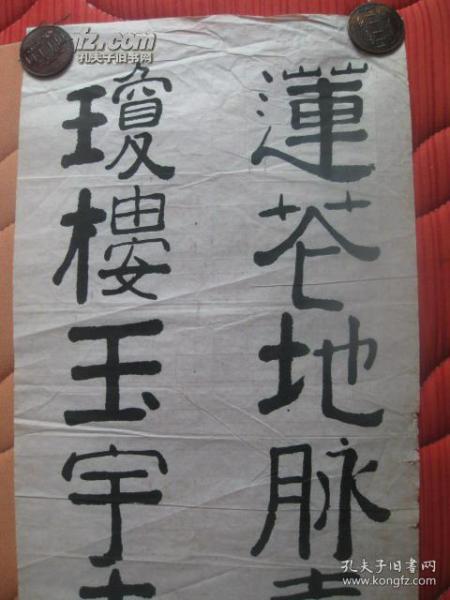 蓮花地脉
瓊樓玉宇
fz.com
孔夫子旧书网
孔夫子旧书网
www.kongfz.com